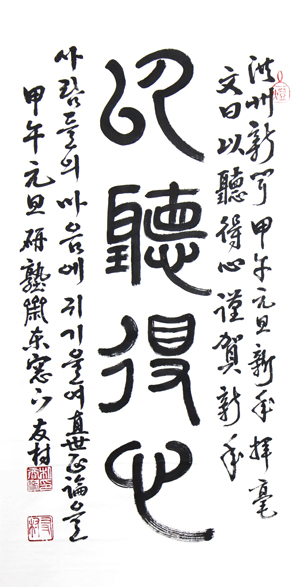 洪州新聞 甲午元旦新年揮毫
文曰以聽得心謹賀新年
以聽得心
사람들의 마음에 귀기울여 直世正論을
甲午元旦硏塾東窓下 友村